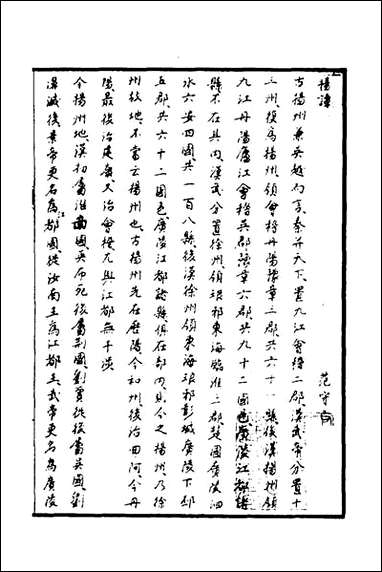 揚譚
范守
古揚州兼吳越而言秦并天下置九江會稽二郡漢武帝分置十
三州複為揚州領會稽丹陽豫章三郡共六十一縣後漢揚州領
九江丹陽廬江會稽吳郡豫章六郡共九十二國邑廣陵江都諸
縣不在其內漢武分置徐州領琅邪東海臨淮三郡楚國廣陵泗
水六安四國共一百八縣後漢徐州領東海琅邪彭城廣陵下邳
五郡共六十二國邑廣陵江都諸縣俱在部內則今之揚州乃徐
州故地不當云揚州也古揚州先在歷陽今和州後治曲阿今丹
陽最後治建康又治會稽尤與江都無干漢
今揚州地漢初屬淮南國英布死後屬荊國劉賈死後屬吳國劉
濞滅後景帝更名為江都國徙汝南王為江都王武帝更名為廣陵